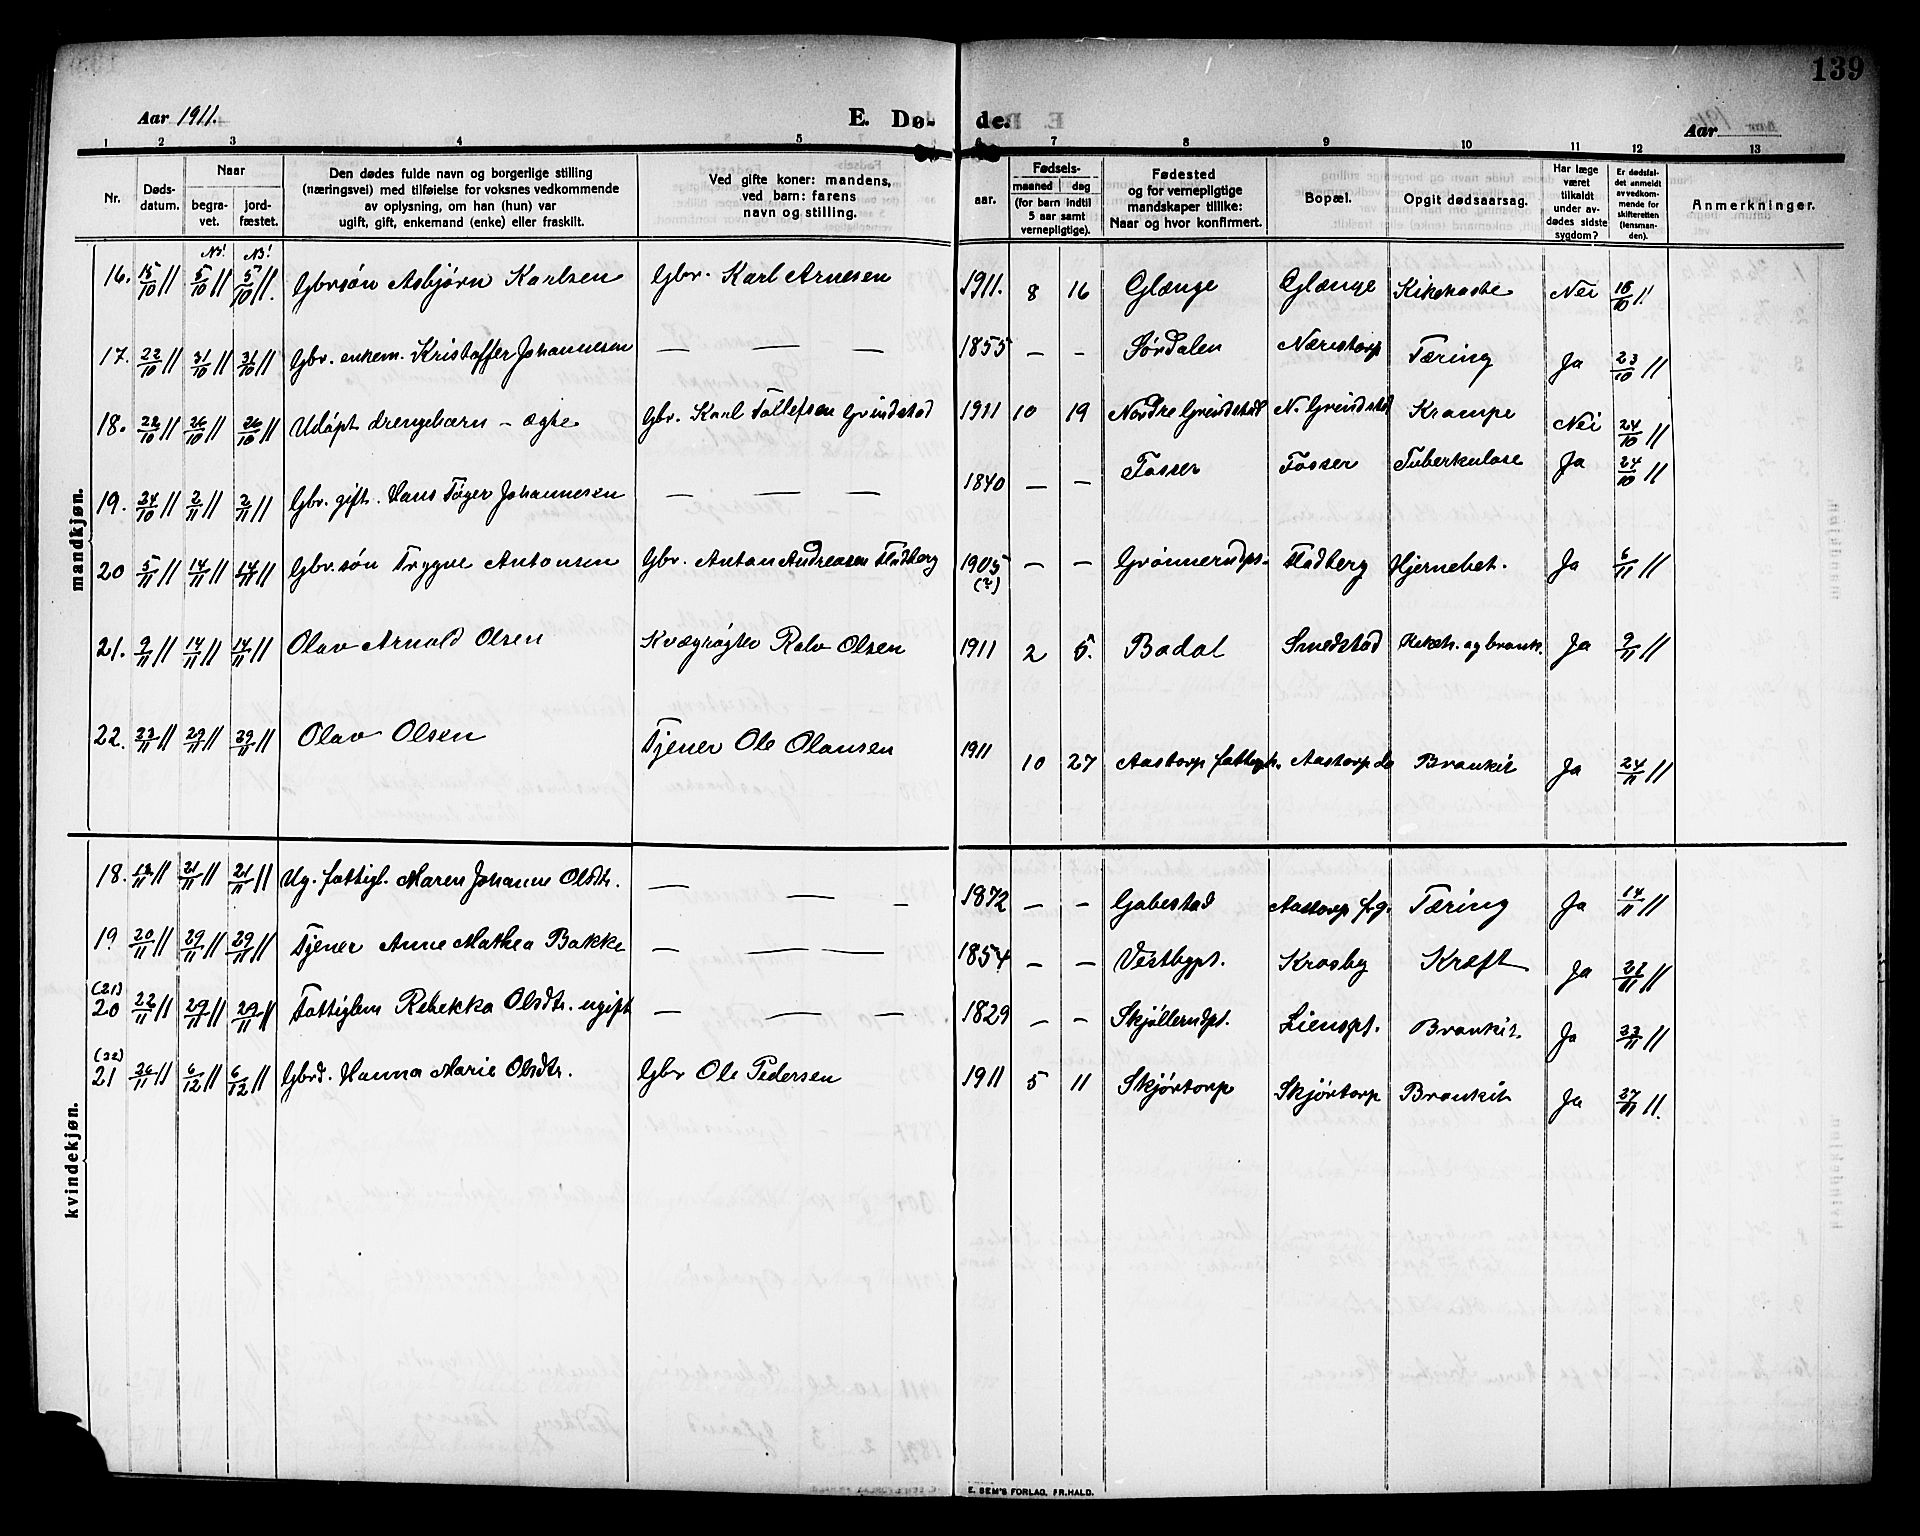 139
Aar 1911.
E. Dø- de.
Aar
1 2 3 4 5 7 8 9 10 11 12 13
Nr.
Døds-datum.
Naar
begra-vet.
jord-fæstet.
Den dødes fulde navn og borgerlige stilling
(næringsvei) med tilføielse for voksnes vedkommende
av oplysning, om han (hun) var
ugift, gift, enkemand (enke) eller fraskilt.
Ved gifte koner: mandens,
ved barn: farens
navn og stilling.
Fødsels-
aar.
maaned
dag
(for barn indtil
5 aar samt
vernepligtige).
Fødested
og for vernepligtige
mandskaper tillike:
Naar og hvor konfirmert.
Bopæl.
Opgit dødsaarsag.
Har læge
været
tilkaldt
under av-
dødes sidste
sygdom?
Er dødsfal-
det anmeldt
av vedkom-
mende for
skifteretten
(lensman-
den).
Anmerkninger.
mandkjøn.
N3! N3!
16. 15/10 11 5/10 11 5/10 11. Gbrsøn Asbjørn Karlsen Gbr. Karl Arnesen 1911. 8 16 Glænge Glænge Kikhoste Nei 16/10 11
17. 22/10 11 31/10 11 31/10 11 Gbr. enkem. Kristoffer Johannesen — — — 1855 – – Sørdalen Nærestorp Tæring Ja 23/10 11
18. 22/10 11 26/10 11 26/10 11 Udøpt drengebarn – ægte Gbr. Karl Tollefsen Grindstad 1911 10 19 Nordre Grindstad N. Grindstad Krampe Nei 24/10 11
19. 24/10 11 2/11 11 2/11 11 Gbr. gift. Hans Tøger Johannesen — — — 1840 – – Fosser Fosser Tuberkulose Ja 24/10 11
20 5/11 11 14/11 11 14/11 11 Gbr.søn Trygve Antonsen Gbr. Anton Andreasen Fladberg 1905 (?) – – Grønnerudps. Fladberg Hjernebet. Ja 6/11 11
21. 9/11 11 14/11 11 14/11 11 Olav Arnold Olsen Kvægrøgter Rolv Olsen 1911 2 5. Bodal Smedstad Kikh. og bronk. Ja 9/11 11
22. 23/11 11 29/11 11 29/11 11 Olav Olsen Tjener Ole Olausen 1911 10 27 Aastorp fattigh. Aastorp do Bronkit Ja 24/11 11
kvindekjøn.
18. 12/11 11 21/11 11 21/11 11 Ug. fattigl. Maren Johanne Olsdtr. — — – 1872 – – Gabestad Aastorp f.g. Tæring Ja 14/11 11
19. 20/11 11 29/11 11 29/11 11 Tjener Anne Mathea Bakke – — — 1854 – – Vestbypt. Krosby Kræft Ja 22/11 11
(21)
20 22/11 11 29/11 11 29/11 11 Fattiglem Rebekka Olsdtr. ugift – — – 1829 – – Skjøllerudpt. Lienspt. Bronkit. Ja 23/11 11
(22)
21 26/11 11 6/12 11 6/12 11 Gbrd. Hanna Marie Olsdtr. Gbr Ole Pedersen 1911 5 11 Skjørtorp Skjørtorp Bronkit Ja 27/11 11.
E. SEM'S FORLAG, FR.HALD.